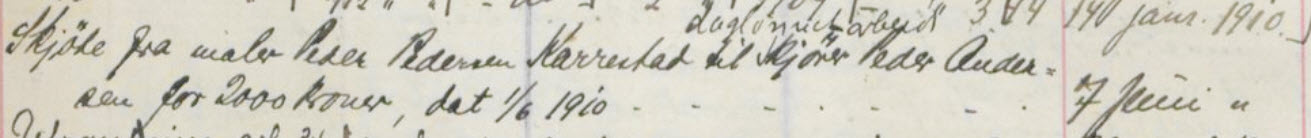 arbeid 3 14 14 janr. 1910.
Skjöte fra maler Peder Pedersen Karrestad til Skjörer Peder Ander-
sen for 2000 kroner, dat 1/6 1910 - - - - - - - 7 Juni "